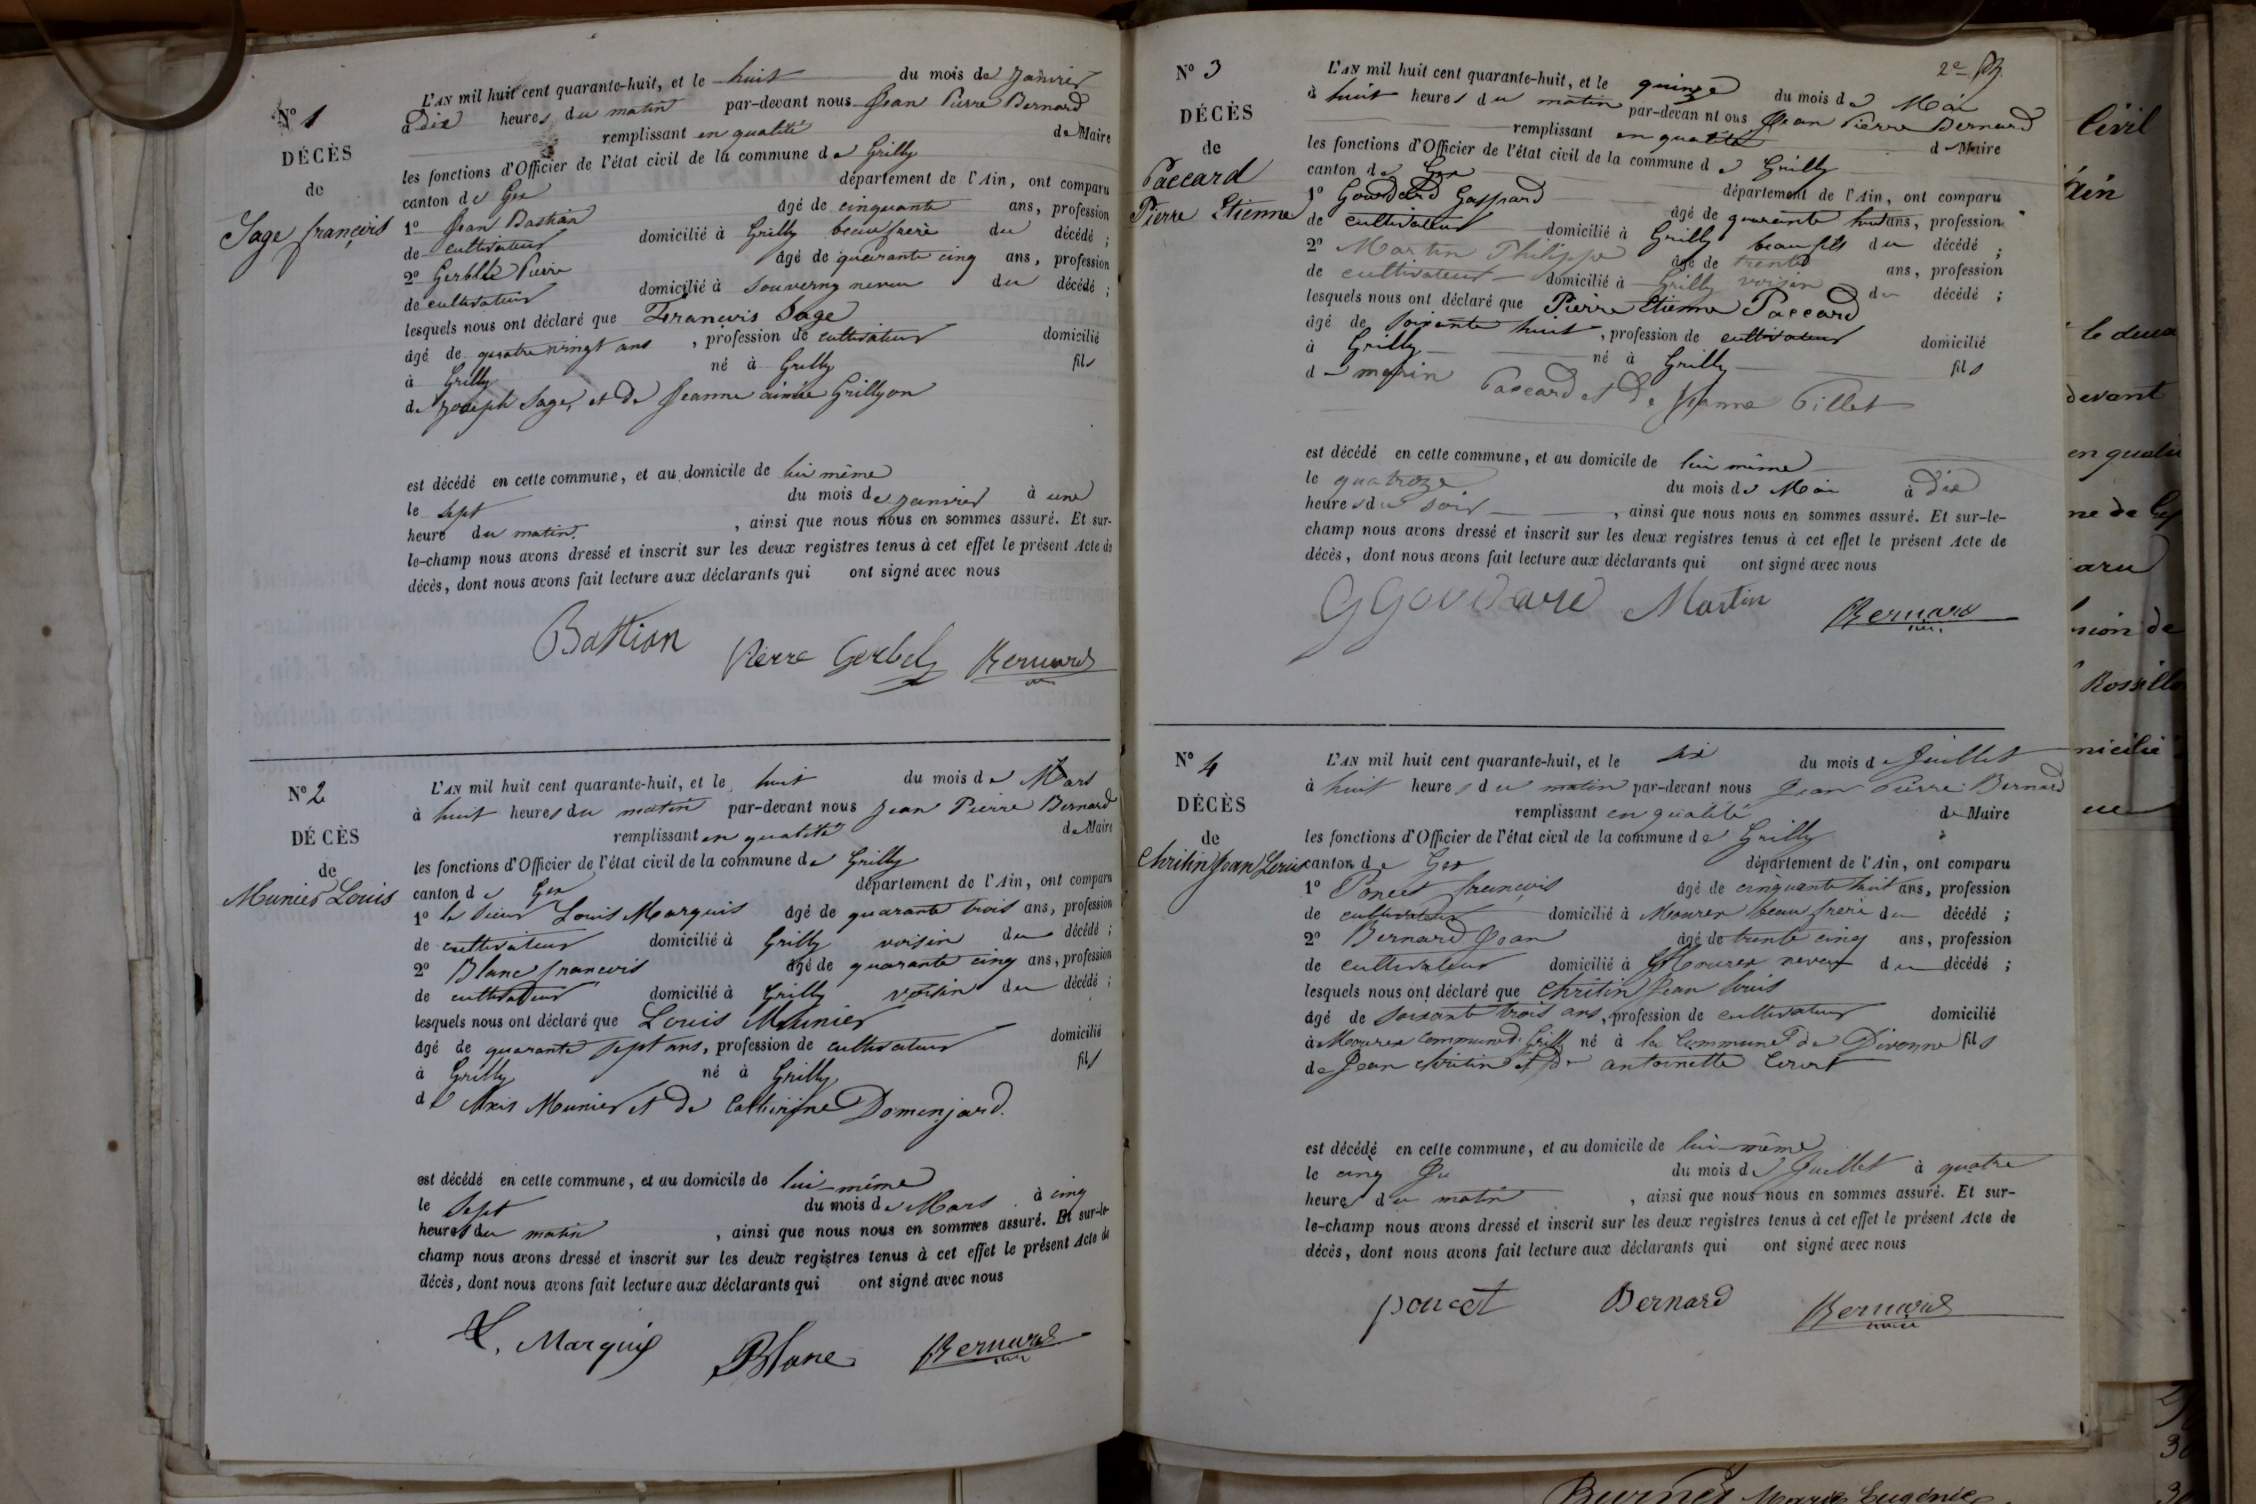 N° 1
DÉCÈS
de
Sage françois
L'AN mil huit cent quarante-huit, et le huit du mois de Janvier
à Dix heures du matin par-devant nous Jean Pierre Bernard
remplissant en qualité de Maire
les fonctions d'Officier de l'état civil de la commune de Grilly
canton de Gex département de l'Ain, ont comparu
1° Jean Bastian âgé de cinquante ans, profession
de cultivateur domicilié à Grilly beaufrère du décédé ;
2° Gerblé Pierre âgé de quarante cinq ans, profession
de cultivateur domicilié à Souverny neveu du décédé ;
lesquels nous ont déclaré que Francois Sage
âgé de quatre vingt ans , profession de cultivateur domicilié
à Grilly né à Grilly fils
de Joseph Sage, et de Jeanne aimée Grillyon
est décédé en cette commune, et au domicile de lui même
le sept du mois de janvier à une
heure du matin , ainsi que nous nous en sommes assuré. Et sur-
le-champ nous avons dressé et inscrit sur les deux registres tenus à cet effet le présent Acte de
décès, dont nous avons fait lecture aux déclarants qui ont signé avec nous
Bastian Pierre Gerbel Bernard
N° 2
DÉCÈS
de
Munier Louis
L'AN mil huit cent quarante-huit, et le huit du mois de Mars
à huit heures du matin par-devant nous Jean Pierre Bernard
remplissant en qualité de Maire
les fonctions d'Officier de l'état civil de la commune de Grilly
canton de Gex département de l'Ain, ont comparu
1° le sieur Louis Marquis âgé de quarante trois ans, profession
de cultivateur domicilié à Grilly voisin du décédé ;
2° Blanc francois âgé de quarante cinq ans, profession
de cultivateur domicilié à Grilly voisin du décédé ;
lesquels nous ont déclaré que Louis Munier
âgé de quarante sept ans, profession de cultivateur domicilié
à Grilly né à Grilly fils
de Munier et de Catherine Domenjard.
est décédé en cette commune, et au domicile de lui-même
le sept du mois de Mars à cinq
heures du matin , ainsi que nous nous en sommes assuré. Et sur-le-
champ nous avons dressé et inscrit sur les deux registres tenus à cet effet le présent Acte de
décès, dont nous avons fait lecture aux déclarants qui ont signé avec nous
L. Marquis Blanc Bernard
2e
N° 3
DÉCÈS
de
Paccard
Pierre Etienne
L'AN mil huit cent quarante-huit, et le quinze du mois de Mai
à huit heures du matin par-devan nt ous Jean Pierre Bernard
remplissant en qualité de Maire
les fonctions d'Officier de l'état civil de la commune de Grilly
canton de Gex département de l'Ain, ont comparu
1° Gourdard Gaspard âgé de quarante huit ans, profession
de cultivateur domicilié à Grilly beaufils du décédé ;
2° Martin Philippe âgé de trente ans, profession
de cultivateur domicilié à Grilly voisin du décédé ;
lesquels nous ont déclaré que Pierre Etienne Paccard
âgé de soixante huit , profession de cultivateur domicilié
à Grilly né à Grilly fils
de Paccard et de Jeanne Pillet
est décédé en cette commune, et au domicile de lui même
le quatorze du mois de Mai à dix
heures du soir , ainsi que nous nous en sommes assuré. Et sur-le-
champ nous avons dressé et inscrit sur les deux registres tenus à cet effet le présent Acte de
décès, dont nous avons fait lecture aux déclarants qui ont signé avec nous
G Gourdard Martin Bernard
N° 4
DÉCÈS
de
Chritin Jean Louis
L'AN mil huit cent quarante-huit, et le six du mois de Juillet
à huit heures du matin par-devant nous Jean Pierre Bernard
remplissant en qualité de Maire
les fonctions d'Officier de l'état civil de la commune de Grilly
canton de Gex département de l'Ain, ont comparu
1° Poncet françois âgé de cinquante huit ans, profession
de cultivateur domicilié à Mourex beau frère du décédé ;
2° Bernard Jean âgé de trente cinq ans, profession
de cultivateur domicilié à Mourex neveu du décédé ;
lesquels nous ont déclaré que Chritin Jean Louis
âgé de soixante trois ans, profession de cultivateur domicilié
à Mourex commune d. Grilly né à la Commune de Divonne fils
de Jean chritin et de antoinette
est décédé en cette commune, et au domicile de lui-même
le cinq du mois de Juillet à quatre
heures du matin , ainsi que nous nous en sommes assuré. Et sur-
le-champ nous avons dressé et inscrit sur les deux registres tenus à cet effet le présent Acte de
décès, dont nous avons fait lecture aux déclarants qui ont signé avec nous
poncet Bernard Bernard
Civil
devant
Marie Eugénie